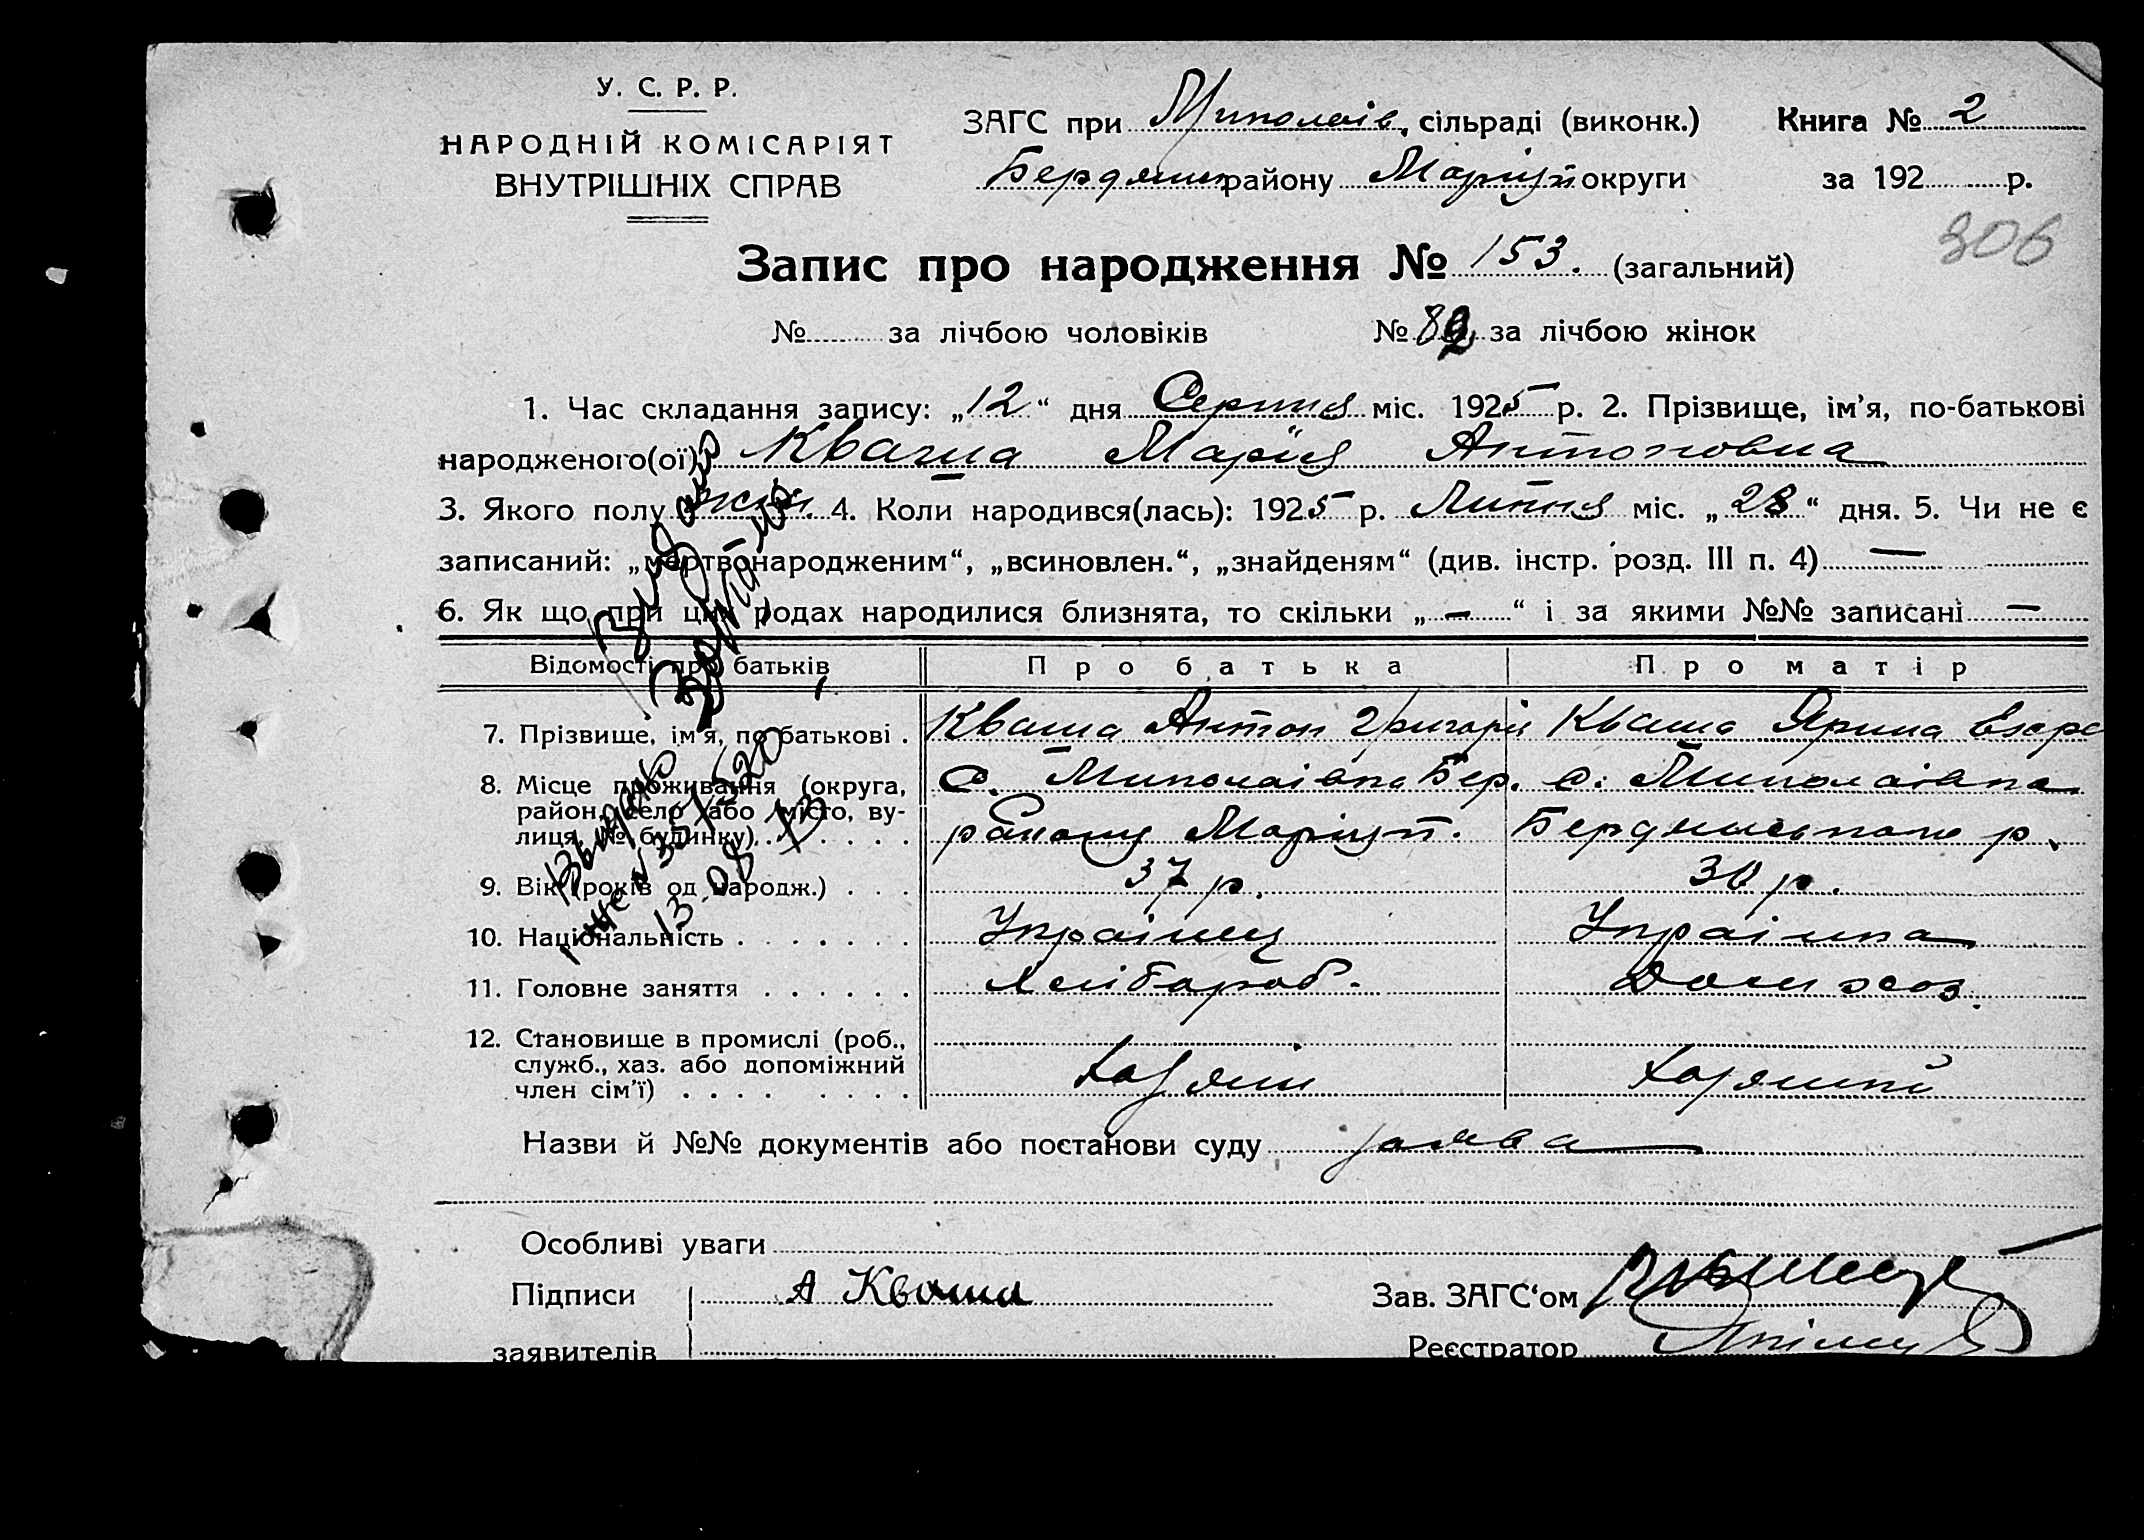 У. С. Р. Р.
НАРОДНІЙ КОМІСАРІЯТ
ВНУТРІШНІХ СПРАВ
ЗАГС при Миколаїв. сільраді (виконк.)
Бердянськ району Маріуп округи
Книга № 2
за 192 р.
306
Запис про народження № 153. (загальний)
№ за лічбою чоловіків № 82 за лічбою жінок
1. Час складання запису: „12“ дня Серпня міс. 1925 р. 2. Прізвище, ім'я, по-батькові
народженого(ої) Кваша Марія Антоновна
3. Якого полу жін. 4. Коли народився(лась): 1925 р. Липня міс. „28“ дня. 5. Чи не є
записаний: „мертвонародженим“, „всиновлен.“, „знайденям“ (див. інстр. розд. III п. 4) —
6. Як що при цих родах народилися близнята, то скільки „—“ і за якими №№ записані —
Відомості про батьків Про батька Про матір
7. Прізвище, ім'я, по батькові . Кваша Антон Григорів Кваша Ярина
8. Місце проживання (округа, с. Миколаівка Бер. с. Миколаівка
район, село або місто, ву-
лиця, № будинку) району Маріуп. Бердянського р.
9. Вік (років од народж.) 37 р. 30 р.
10. Національність Украінец Украінка
11. Головне заняття хліbороб. Дом хоз.
12. Становище в промислі (роб.,
служб., хаз. або допоміжний
член сім'ї) Хазяін Хазяйка
Видано
13 08 73
Назви й №№ документів або постанови суду заява
Особливі уваги —
Підписи А Кваша Зав. ЗАГС‘ом
заявителів Реєстратор